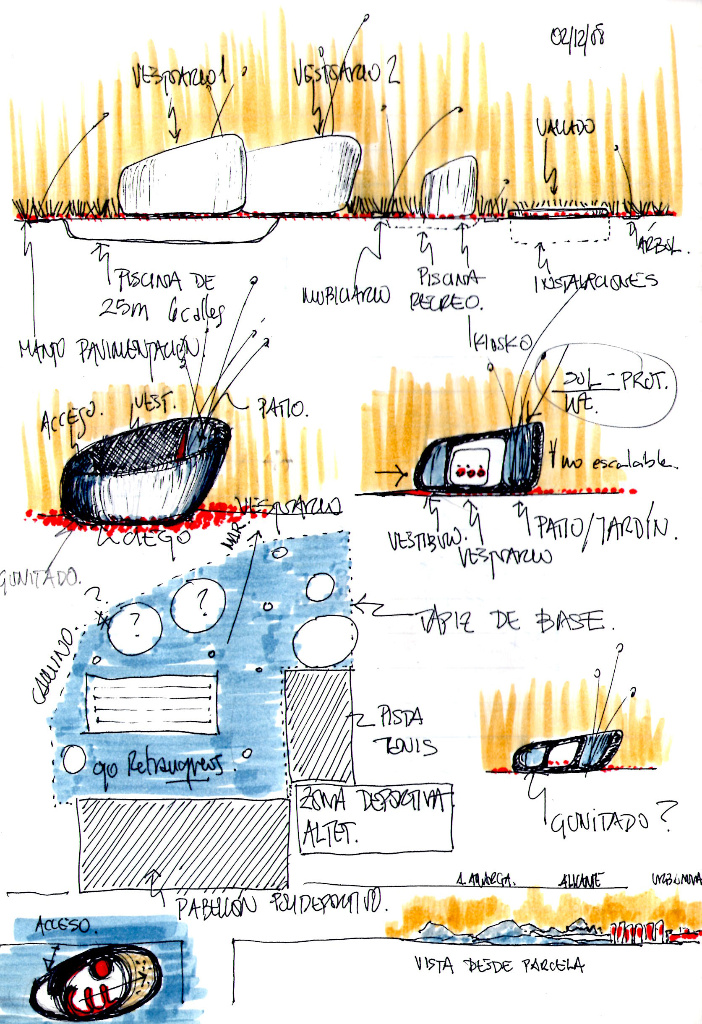 02/12/08
VESTUARIO 1
VESTUARIO 2
VALLADO
ÁRBOL.
PISCINA DE
25m 6 calles
MOBILIARIO
PISCINA
RECREO.
INSTALACIONES
KIOSKO
MANTO PAVIMENTACIÓN.
ACCESO.
VEST.
PATIO.
SOL - PROT.
no escalable.
VESTUARIO
CIEGO
GUNITADO.
VESTIBULO.
VESTUARIO
PATIO/JARDÍN.
?
?
?
CAMINO.
TAPIZ DE BASE.
PISTA
TENIS
ojo Retranqueos.
ZONA DEPORTIVA
ALTET.
GUNITADO?
PABELLÓN POLIDEPORTIVO.
ALICANTE
URBANOVA
ACCESO.
VISTA DESDE PARCELA